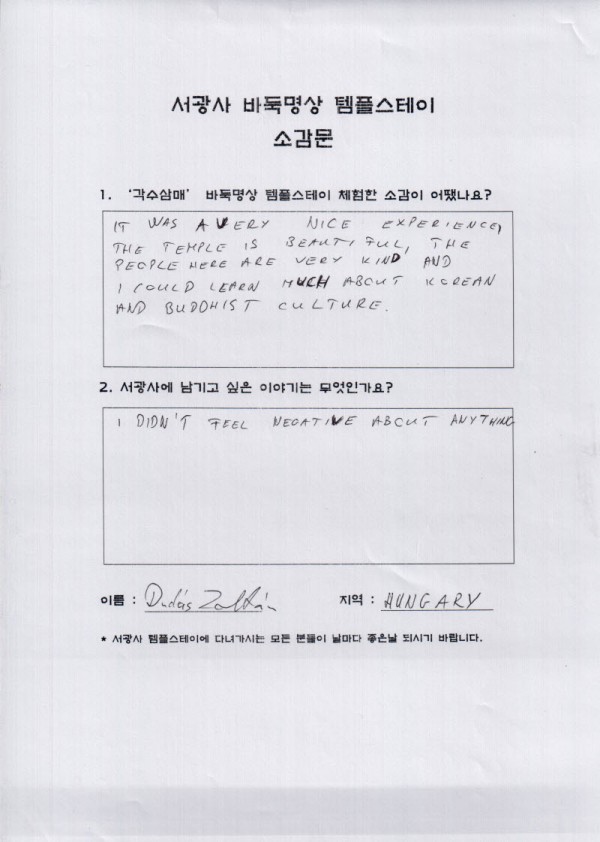 서광사 바둑명상 템플스테이
소감문
1. '각수삼매' 바둑명상 템플스테이 체험한 소감이 어땠나요?
IT WAS A VERY NICE EXPERIENCE,
THE TEMPLE IS BEAUTIFUL, THE
PEOPLE HERE ARE VERY KIND AND
I COULD LEARN MUCH ABOUT KOREAN
AND BUDDHIST CULTURE.
2. 서광사에 남기고 싶은 이야기는 무엇인가요?
I DIDN'T FEEL NEGATIVE ABOUT ANYTHING
이름 : Dudás Zoltán 지역 : HUNGARY
* 서광사 템플스테이에 다녀가시는 모든 분들이 날마다 좋은날 되시기 바랍니다.